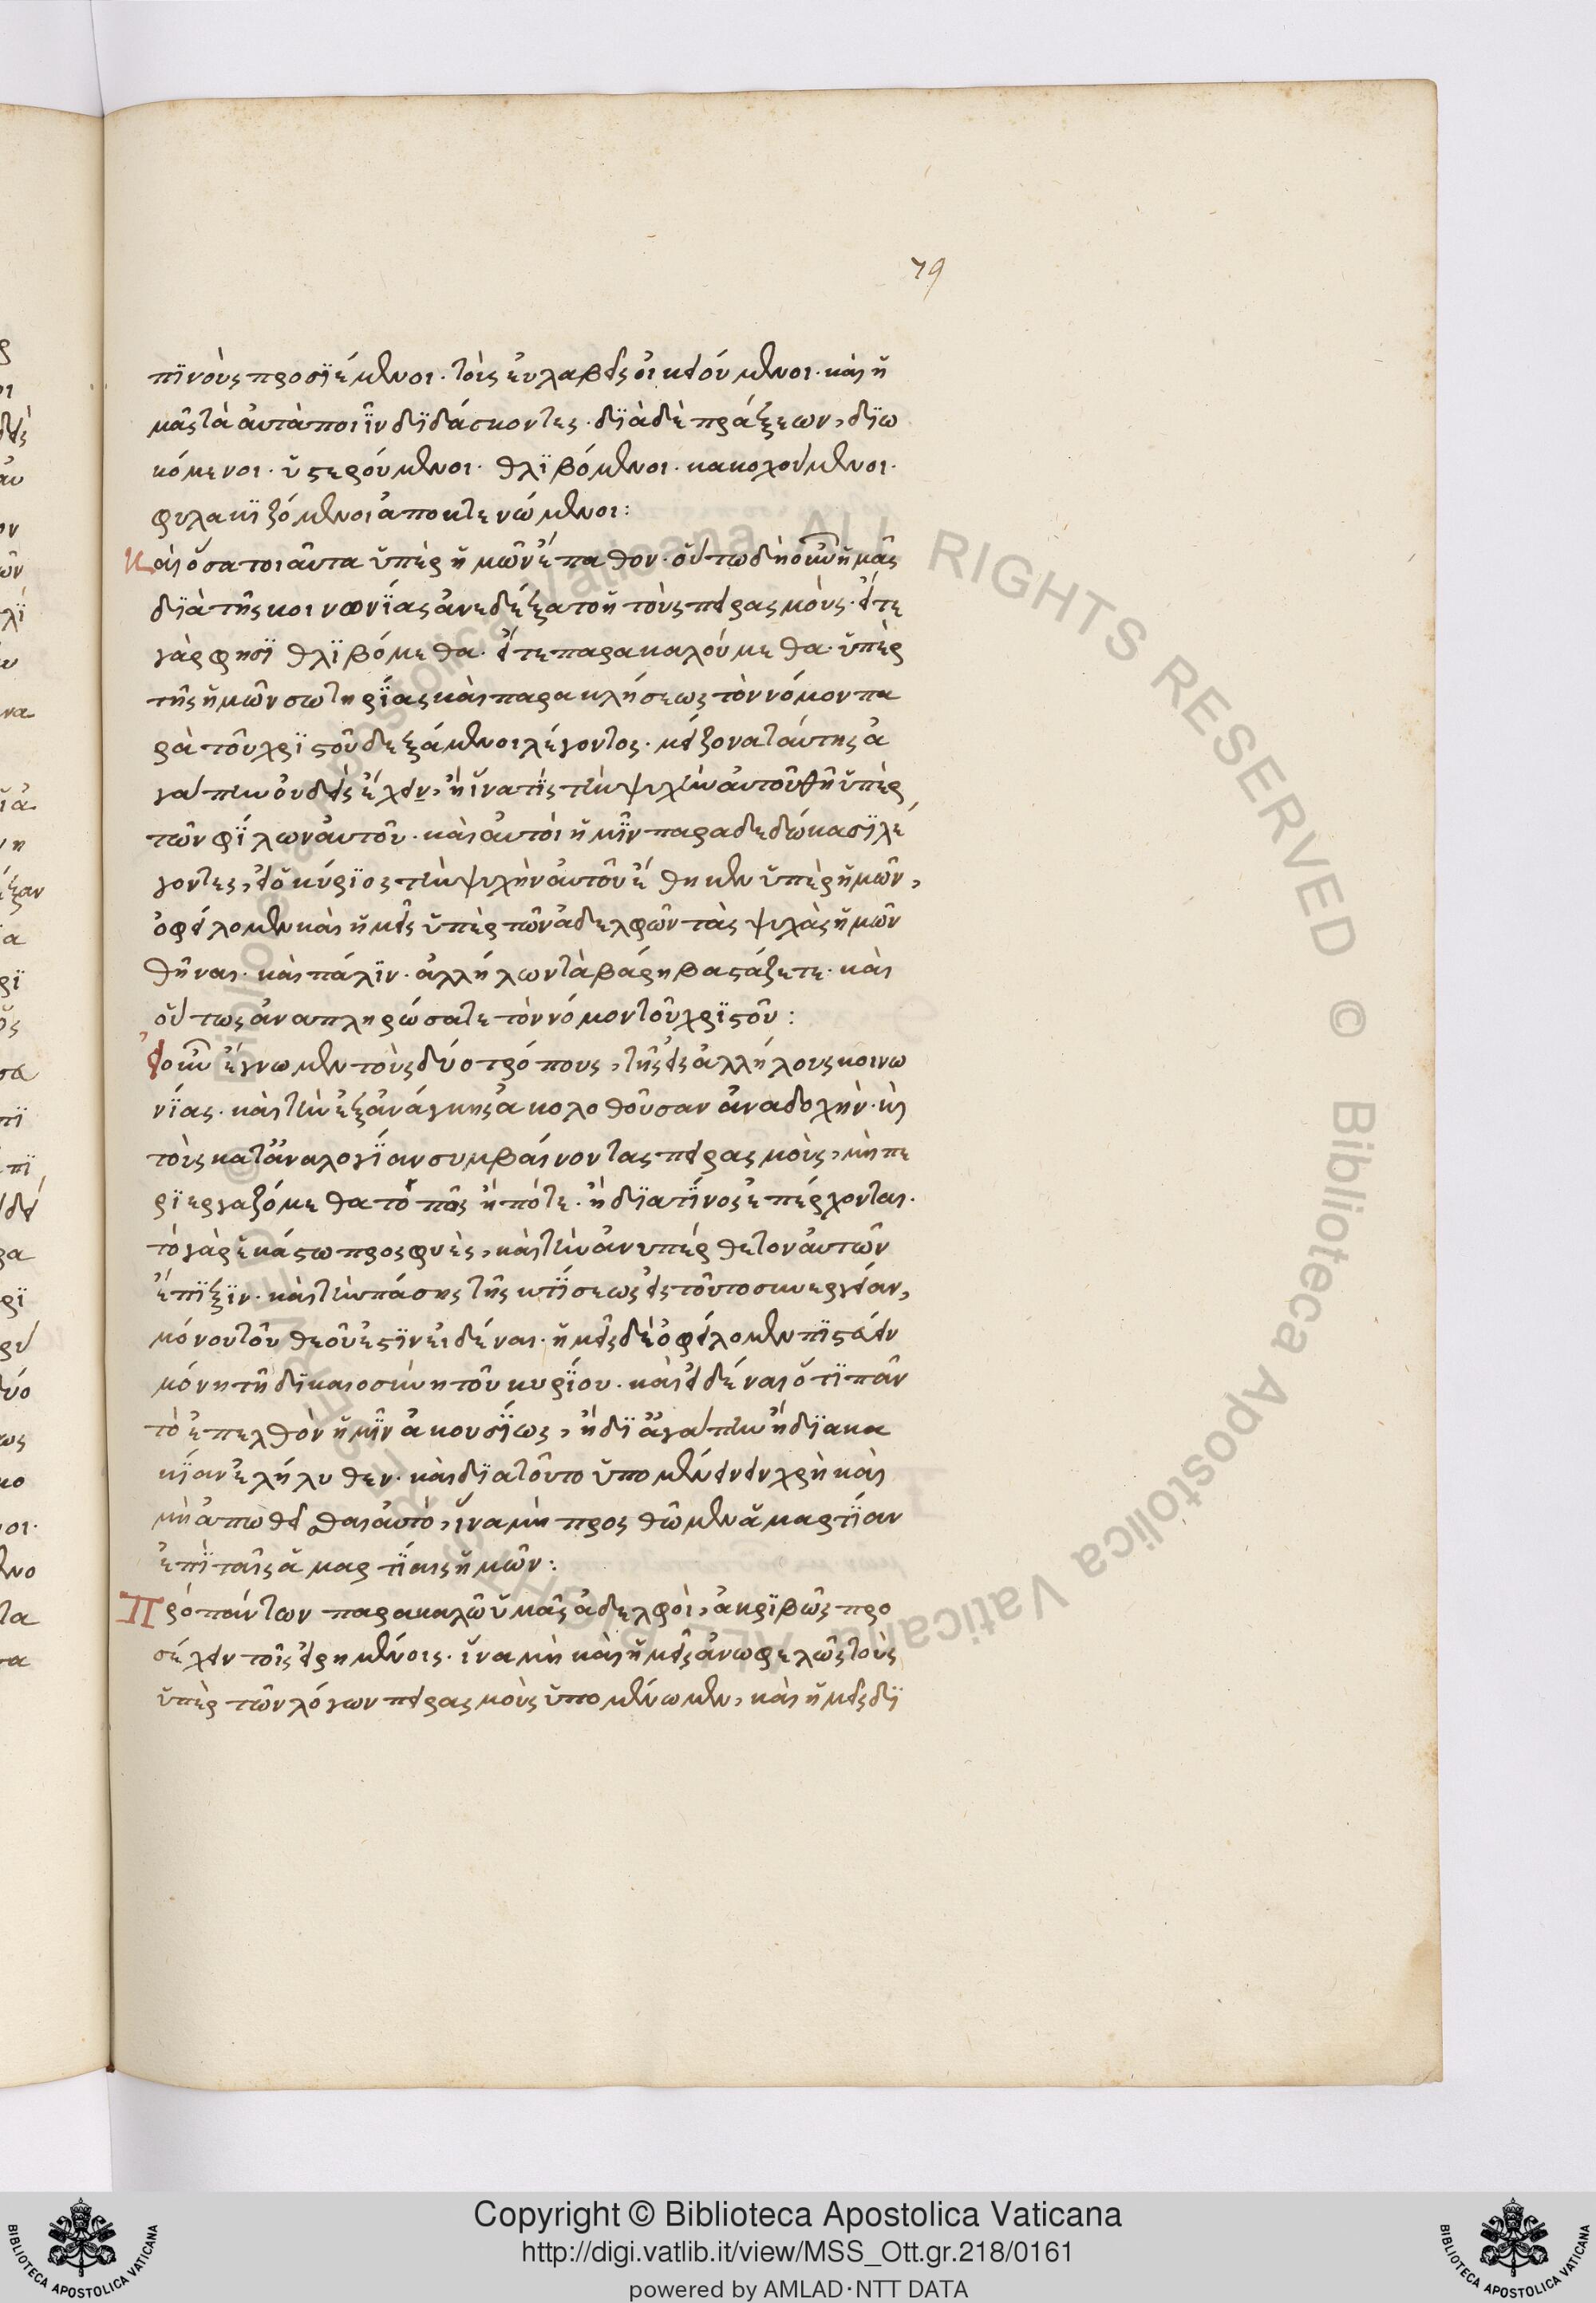 79
πϊνοὺς προσϊέμενοι. τοὶς εὐλαβεῖς οἰκειούμενοι. καὶ ἡ
μᾶς τὰ ἀυτὰ ποιῆν δϊδάσκοντες. δϊὰ δὲ πράξεων, δϊω
κόμενοι. ὑστερούμενοι. θλϊβόμενοι. κακοχούμενοι.
φυλακϊζόμενοι ἀποκτενώμενοι:
Καὶ ὅσα τοιαῦτα ὑπὲρ ἡμῶν ἔπαθον. οὕτω δὴ οὖν ἡμᾶς
δϊὰ τῆς κοινωνϊας ἀνεδέξατο ἢ τοὺς πειρασμοὺς. εἴτε
γὰρ φησϊ θλϊβόμεθα. εἴτε παρακαλούμεθα. ὑπὲρ
τῆς ἡμῶν σωτηρϊας καὶ παρακλήσεως τὸν νόμον πα
ρὰ τοῦ χρϊστοῦ δεξάμενοι λέγοντος. μείζονα ταύτης ἀ
γάπην οὐδεὶς ἔχειν, ἢ ἵνα τϊς τὴν ψυχὴν ἀυτοῦ θῆ ὑπὲρ
τῶν φϊλων ἀυτοῦ. καὶ ἀυτοὶ ἡμῖν παραδεδώκασϊ λέ
γοντες, εἰ ὁ κύρϊος τὴν ψυχὴν ἀυτοῦ ἔθηκεν ὑπὲρ ἡμῶν,
ὀφείλομεν καὶ ἡμεῖς ὑπὲρ τῶν ἀδελφῶν τὰς ψυχὰς ἡμῶν
θῆναι. καὶ πάλϊν. ἀλλήλων τὰ βάρη βαστάζετε. καὶ
οὕτως ἀναπληρώσατε τὸν νόμον τοῦ χρϊστοῦ:
Εἰ οὖν ἔγνωμεν τοὺς δύο τρόπους, τῆς εἰς ἀλλήλους κοινω
νϊας. καὶ τὴν ἐξ ἀνάγκης ἀκολοθοῦσαν ἀναδοχὴν. εἰς
τοὺς κατ' ἀναλογϊαν συμβαίνοντας πειρασμοὺς, μὴ πε
ρϊεργαζόμεθα τὸ πῶς ἢ πότε. ἢ δϊα τϊνος ἐπέρχονται.
τὸ γὰρ ἑκάστω προσφυὲς, καὶ τὴν ἀνυπέρθετον ἀυτῶν
ἔπϊξϊν. καὶ τὴν πάσης τῆς κτϊσεως εἰς τοῦτο συνεργείαν,
μόνου τοῦ θεοῦ ἐστϊν εἰδέναι. ἡμεῖς δὲ ὀφείλομεν πϊστεύειν
μόνη τῆ δϊκαιοσύνη τοῦ κυρϊου. καὶ εἰδέναι ὅτϊ πᾶν
τὸ ἐπελθὸν ἡμῖν ἀκουσϊως, ἢ δϊ' ἀγάπην ἢ δϊα κα
κϊαν ἐλήλυθεν. καὶ δϊα τοῦτο ὑπομένειν χρὴ καὶ
μὴ ἀπωθεῖσθαι ἀυτὸ, ἵνα μὴ προσθῶμεν ἁμαρτϊαν
ἐπϊ ταῖς ἁμαρτϊαις ἡμῶν:
Πρὸ πάντων παρακαλῶ ὑμᾶς ἀδελφοὶ, ἀκρϊβῶς προ
σέχειν τοῖς εἰρημένοις. ἵνα μὴ καὶ ἡμεῖς ἀνωφελῶς τοὺς
ὑπὲρ τῶν λόγων πειρασμοὺς ὑπομένωμεν, καὶ ἡμεῖς δϊ
Copyright © Biblioteca Apostolica Vaticana
http://digi.vatlib.it/view/MSS_Ott.gr.218/0161
powered by AMLAD·NTT DATA